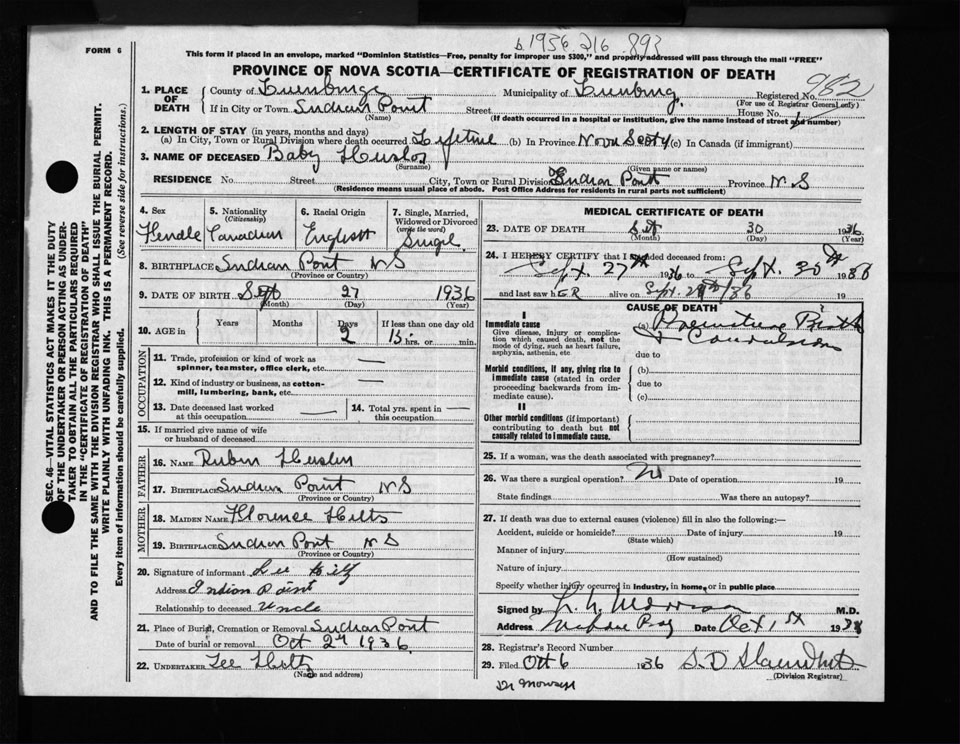 FORM 6
b 1936 216 893
This form if placed in an envelope, marked "Dominion Statistics—Free, penalty for improper use $300," and properly addressed will pass through the mail "FREE"
PROVINCE OF NOVA SCOTIA—CERTIFICATE OF REGISTRATION OF DEATH
1. PLACE OF DEATH
County of Lunenburg Municipality of Lunenburg. Registered No. 982
(For use of Registrar General only)
If in City or Town Indian Point Street House No.
(Name) (If death occurred in a hospital or institution, give the name instead of street and number)
2. LENGTH OF STAY (in years, months and days)
(a) In City, Town or Rural Division where death occurred Lifetime (b) In Province Nova Scotia (c) In Canada (if immigrant)
3. NAME OF DECEASED Baby
(Surname) (Given name or names)
RESIDENCE No. Street City, Town or Rural Division Indian Point Province N S
(Residence means usual place of abode. Post Office Address for residents in rural parts not sufficient)
4. Sex
5. Nationality (Citizenship)
6. Racial Origin
7. Single, Married, Widowed or Divorced (write the word)
Canadian English Single
8. BIRTHPLACE Indian Point N S
(Province or Country)
9. DATE OF BIRTH Sept 27 1936
(Month) (Day) (Year)
10. AGE in Years Months Days If less than one day old
2 hrs. or min.
OCCUPATION
11. Trade, profession or kind of work as spinner, teamster, office clerk, etc.
12. Kind of industry or business, as cotton-mill, lumbering, bank, etc.
13. Date deceased last worked at this occupation
14. Total yrs. spent in this occupation
15. If married give name of wife or husband of deceased
FATHER
16. NAME Rubin
17. Birthplace Indian Point N S
(Province or Country)
MOTHER
18. MAIDEN NAME Florence Hilts
19. Birthplace Indian Point N S
(Province or Country)
20. Signature of informant Lee
Address Indian Point
Relationship to deceased Uncle
21. Place of Burial, Cremation or Removal Indian Point
Date of burial or removal Oct 2nd 1936
22. UNDERTAKER Lee
(Name and address)
MEDICAL CERTIFICATE OF DEATH
23. DATE OF DEATH 30 1936
(Month) (Day) (Year)
24. I HEREBY CERTIFY that I attended deceased from:
Sept. 27th 1936 to Sept. 30th 1936
and last saw hER alive on Sept. 29th/36 19
CAUSE OF DEATH
I
Immediate cause
Give disease, injury or complication which caused death, not the mode of dying, such as heart failure, asphyxia, asthenia, etc
(a) Premature Birth
Convulsions
due to
Morbid conditions, if any, giving rise to immediate cause (stated in order proceeding backwards from immediate cause).
(b)
due to
(c)
II
Other morbid conditions (if important) contributing to death but not causally related to immediate cause.
25. If a woman, was the death associated with pregnancy?
26. Was there a surgical operation? No Date of operation 19
State findings Was there an autopsy?
27. If death was due to external causes (violence) fill in also the following:—
Accident, suicide or homicide? Date of injury 19
(State which)
Manner of injury
(How sustained)
Nature of injury
Specify whether injury occurred in industry, in home, or in public place
Signed by M.D.
Address Mahone Bay Date Oct 1st 19
28. Registrar's Record Number
29. Filed Oct 6 1936 S. D.
(Division Registrar)
SEC. 46—VITAL STATISTICS ACT MAKES IT THE DUTY
OF THE UNDERTAKER OR PERSON ACTING AS UNDER-
TAKER TO OBTAIN ALL THE PARTICULARS REQUIRED
IN THE "CERTIFICATE OF REGISTRATION OF DEATH"
AND TO FILE THE SAME WITH THE DIVISION REGISTRAR WHO SHALL ISSUE THE BURIAL PERMIT.
WRITE PLAINLY WITH UNFADING INK. THIS IS A PERMANENT RECORD.
Every item of information should be carefully supplied. (See reverse side for instructions.)